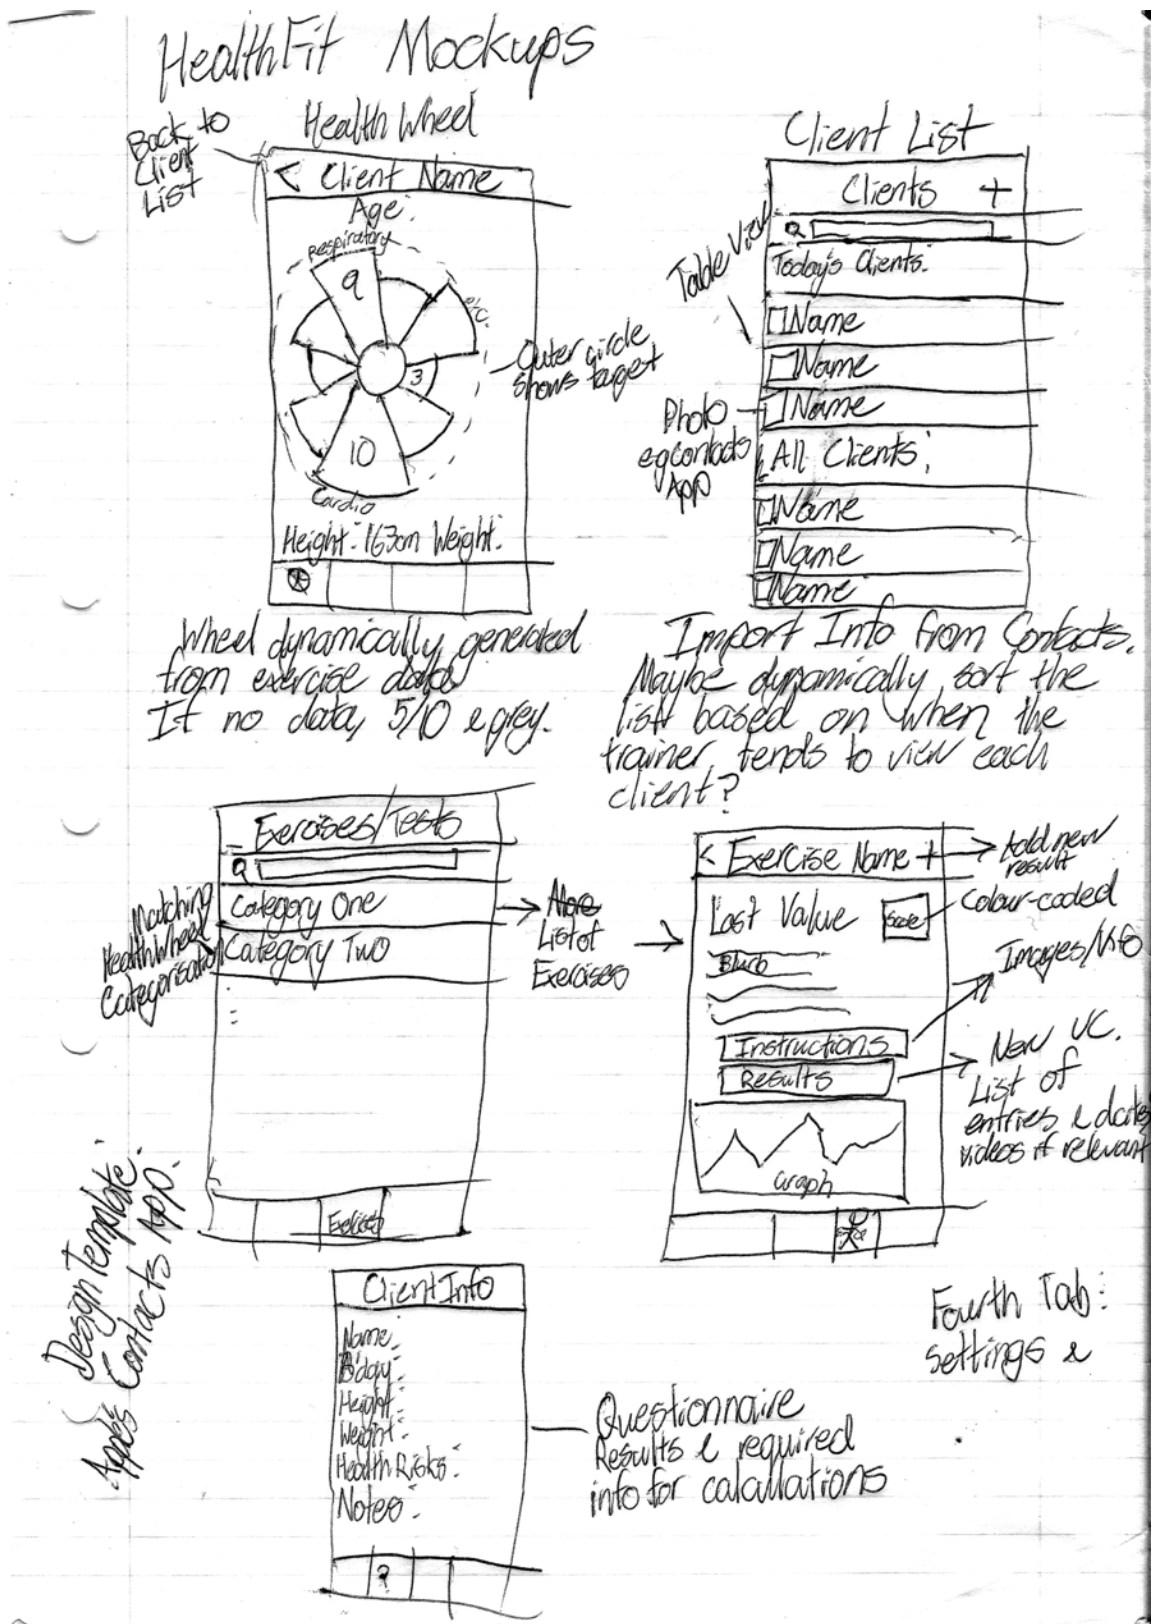 HealthFit Mockups
Back to
Client
List
Health Wheel
< Client Name
Age:
Respiratory
9
etc.
3
10
Cardio
Outer circle
shows target
Height: 163cm Weight:
Wheel dynamically generated
from exercise data
If no data, 5/10 & grey.
Client List
Clients +
Today's Clients:
Name
Name
Name
All Clients:
Name
Name
Name
Table View
Photo
eg contacts
App
Import Info from Contacts.
Maybe dynamically sort the
list based on when the
trainer tends to view each
client?
Exercises/Tests
Category One
Category Two
Exercises
Matching
HealthWheel
Categorisation
List of
Exercises
< Exercise Name +
Add new
result
Last Value
Colour-coded
Blurb
Images/Info
Instructions
Results
New VC.
List of
entries & dates,
videos if relevant
Graph
Design Template:
Apple's Contacts App.
Client Info
Name:
B'day:
Height:
Weight:
Health Risks:
Notes:
?
Questionnaire
Results & required
info for calculations
Fourth Tab:
settings &